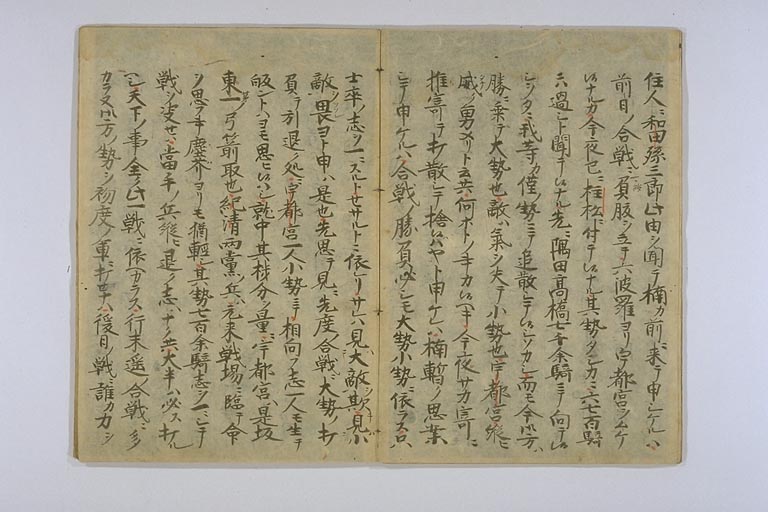 住人ニ和田孫三郎此由ヲ聞テ楠カ前ニ来テ申ケルハ
前日ノ合戦ニ負腹ヲ立テ六波羅ヨリ宇都宮ヲムケ
候ナルカ今夜已ニ柱松ニ付テ候ナルカ其勢タシカニ六七百騎ニ
ハ過シト聞テ候ナル先ニ隅田高橋七千余騎ニテ向テ候
シヲタニ我等カ僅ノ勢ニテ追散シテ候シソカシ而モ今ハ御方ハ
勝ニ乗テ大勢也敵ハ気ヲ失テ小勢也宇都宮縦ヒ
威ノ勇メリト云共何ホトノ事カ候ヘキ今夜サカ寄ニ
推寄テ打散シテ捨候ハヤト申ケレハ楠暫ク思案
シテ申ケルハ合戦ノ勝負必シモ大勢小勢ニ依ラス只
士卒ノ志ヲ一ニスルトセサルトニ依レリサレハ見大敵欺見小
敵畏ヨト申ハ是也先思テ見ニ先度ノ合戦ニ大勢打
負テ引退ク処ニ宇都宮一人小勢ニテ相向フ志一人モ生テ
皈ントハヨモ思ヒ候ハシ就中其機分ヲ量ニ宇都宮ハ是坂
東一ノ弓箭取也紀清両党ノ兵ハ元来戦場ニ臨テ命
ヲ思事塵芥ヨリモ猶軽シ其勢七百余騎志ヲ一ニシテ
戦ヲ決セハ當手ノ兵縦ヒ退ク志ハナク共大半ハ必ス打ル
ヘシ天下ノ事全ク此一戦ニ依ヘカラス行末遥ノ合戦ニ多
カラヌ御方ノ勢ヲ初度ノ軍ニ打セナハ後日ノ戦ニ誰カ力ヲ